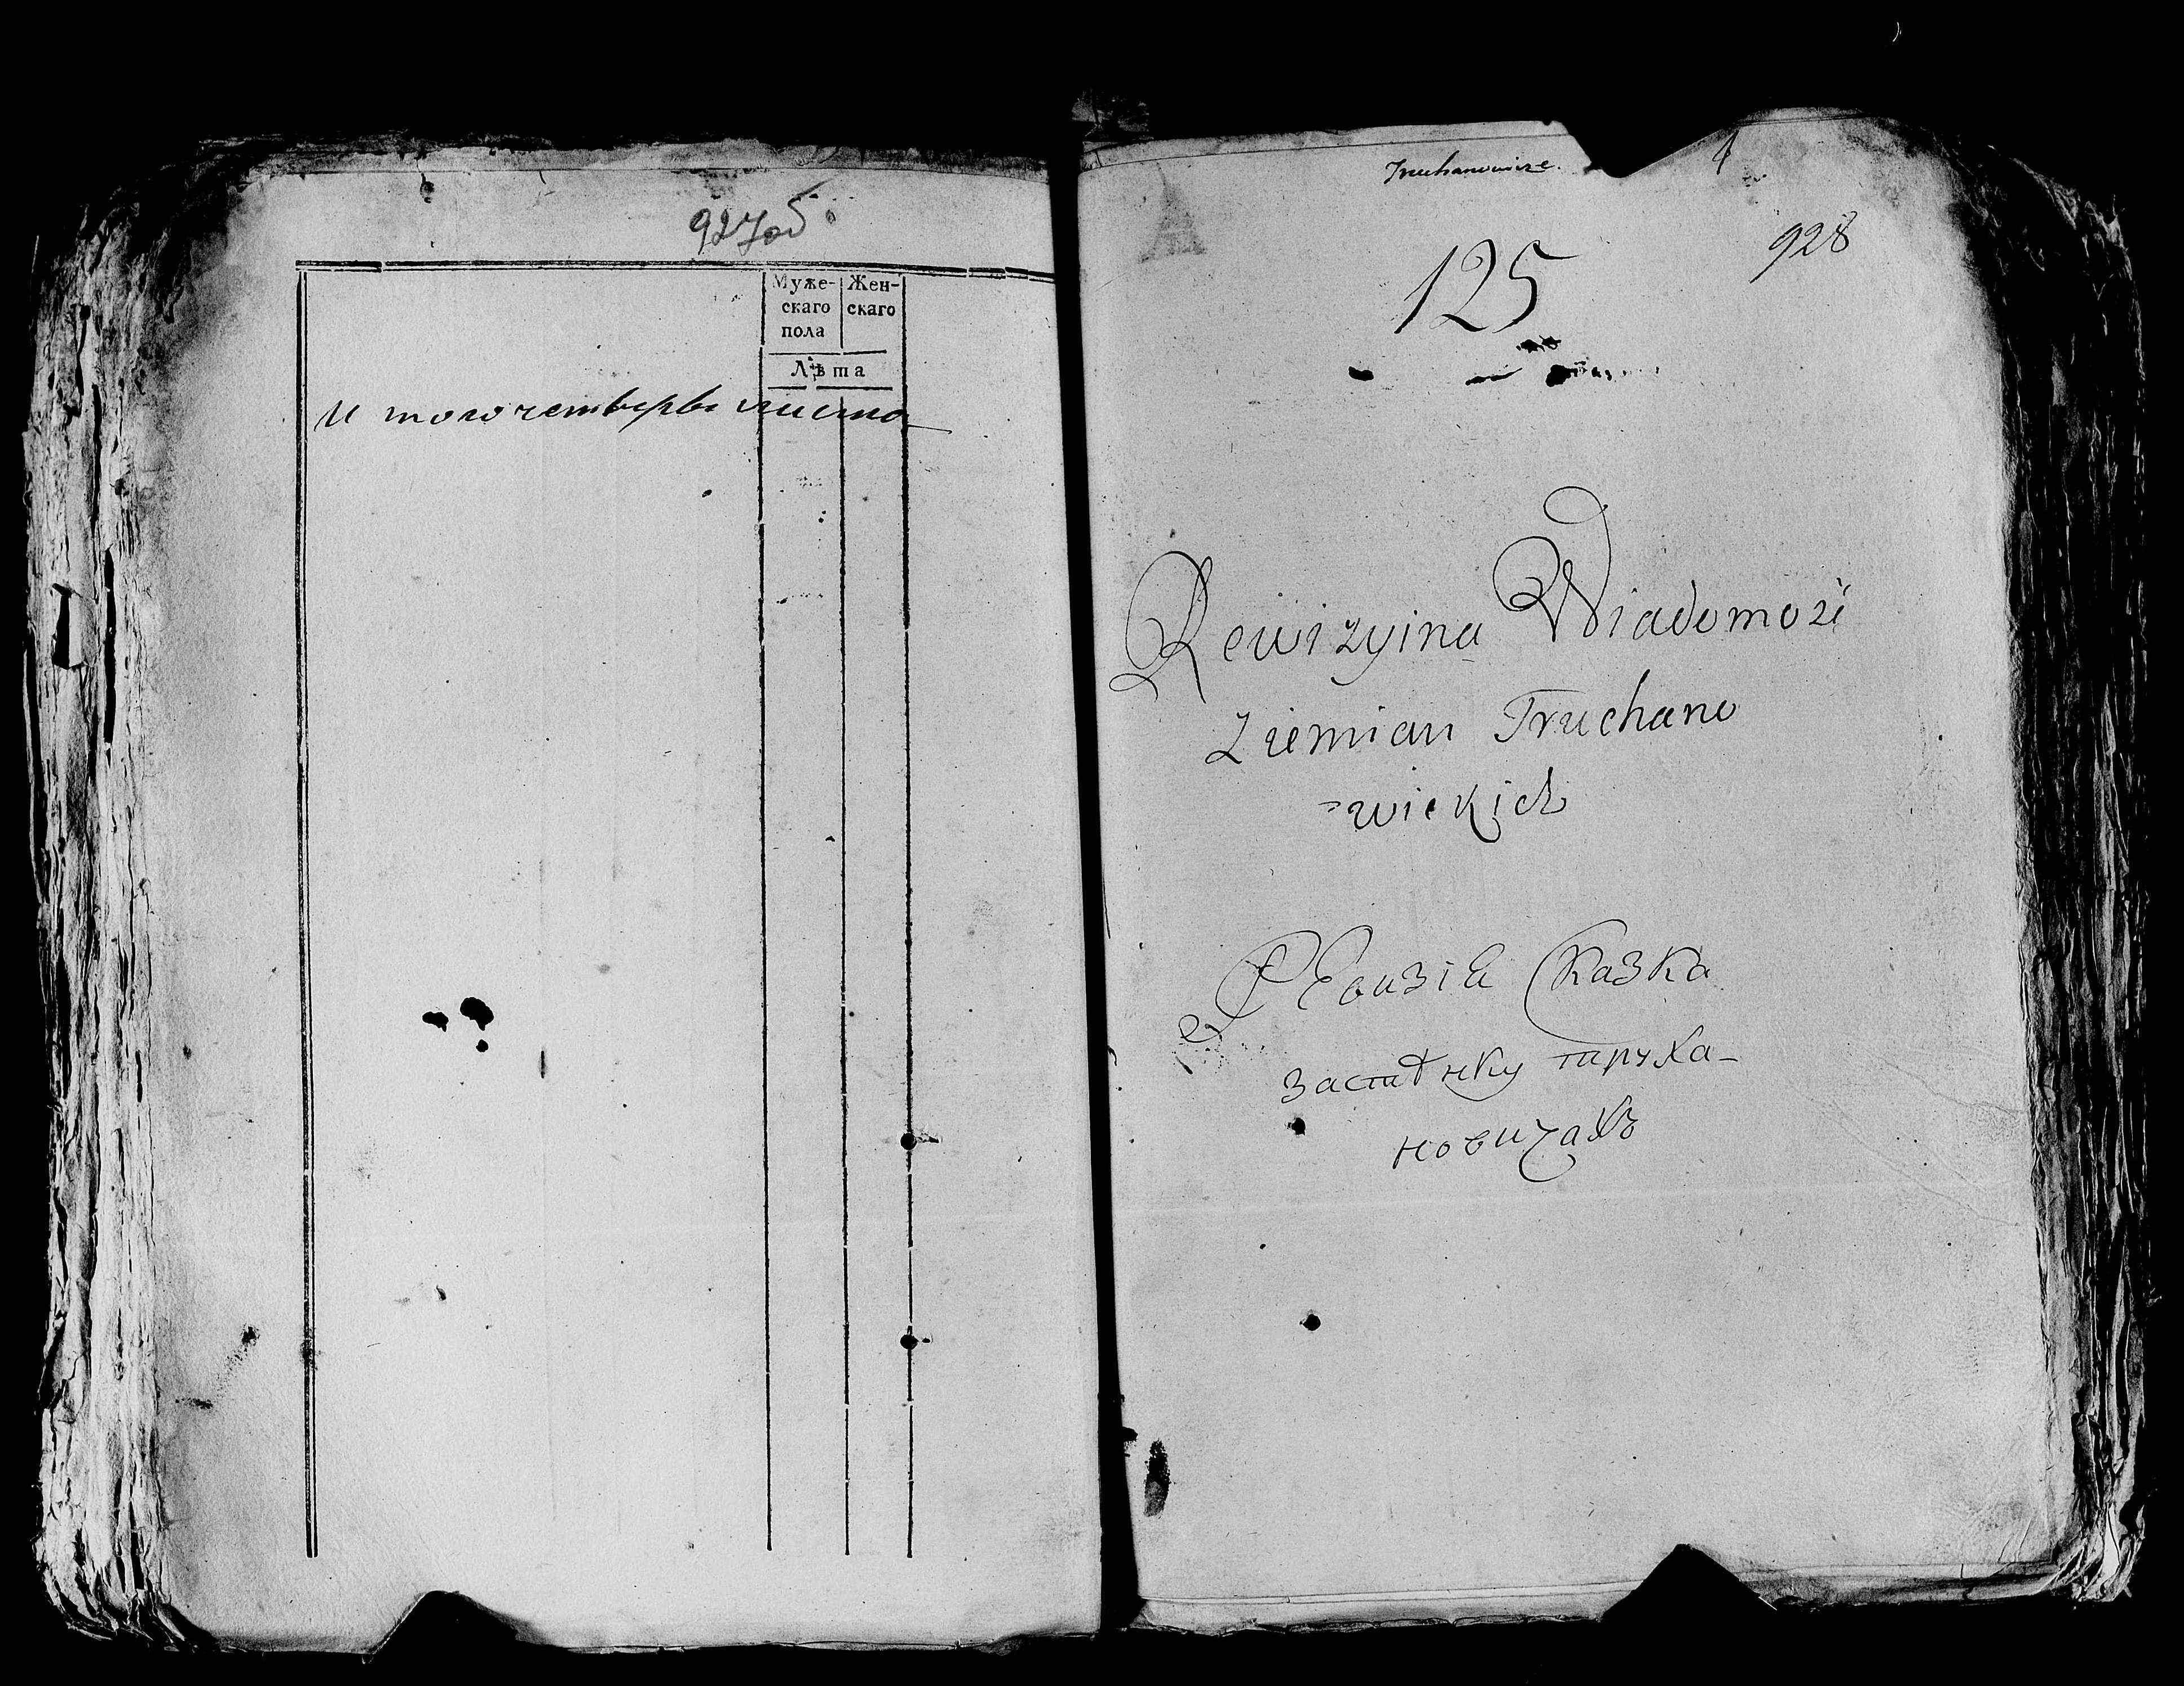 927об
Муже- Жен-
скаго скаго
пола
Лѣта
И того четверы листа
Truchanowicze.
928
125
Rewizyina Wiadomość
Ziemian Truchano
=wickich
Ревизiя Сказка
застѣнку труха-
новичахъ